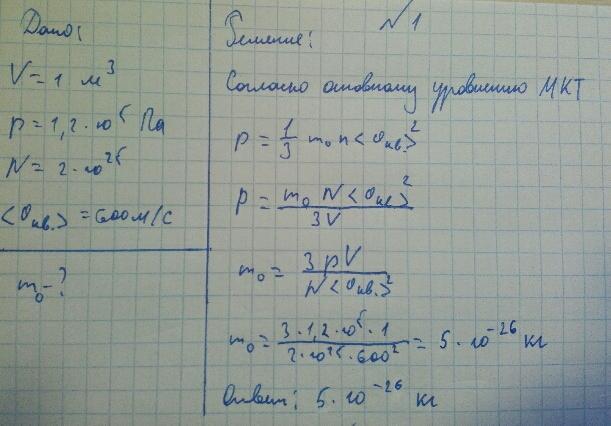 №1
Дано:
V = 1 м³
p = 1,2·10⁵ Па
N = 2·10²⁵
<υкв.> = 600 м/с
m₀ - ?
Решение:
Согласно основному уравнению МКТ
p = 1/3 m₀ n <υкв.>²
p = m₀ N <υкв>² / 3V
m₀ = 3pV / N <υкв.>²
m₀ = 3·1,2·10⁵·1 / 2·10²⁵·600² = 5·10⁻²⁶ кг
Ответ: 5·10⁻²⁶ кг